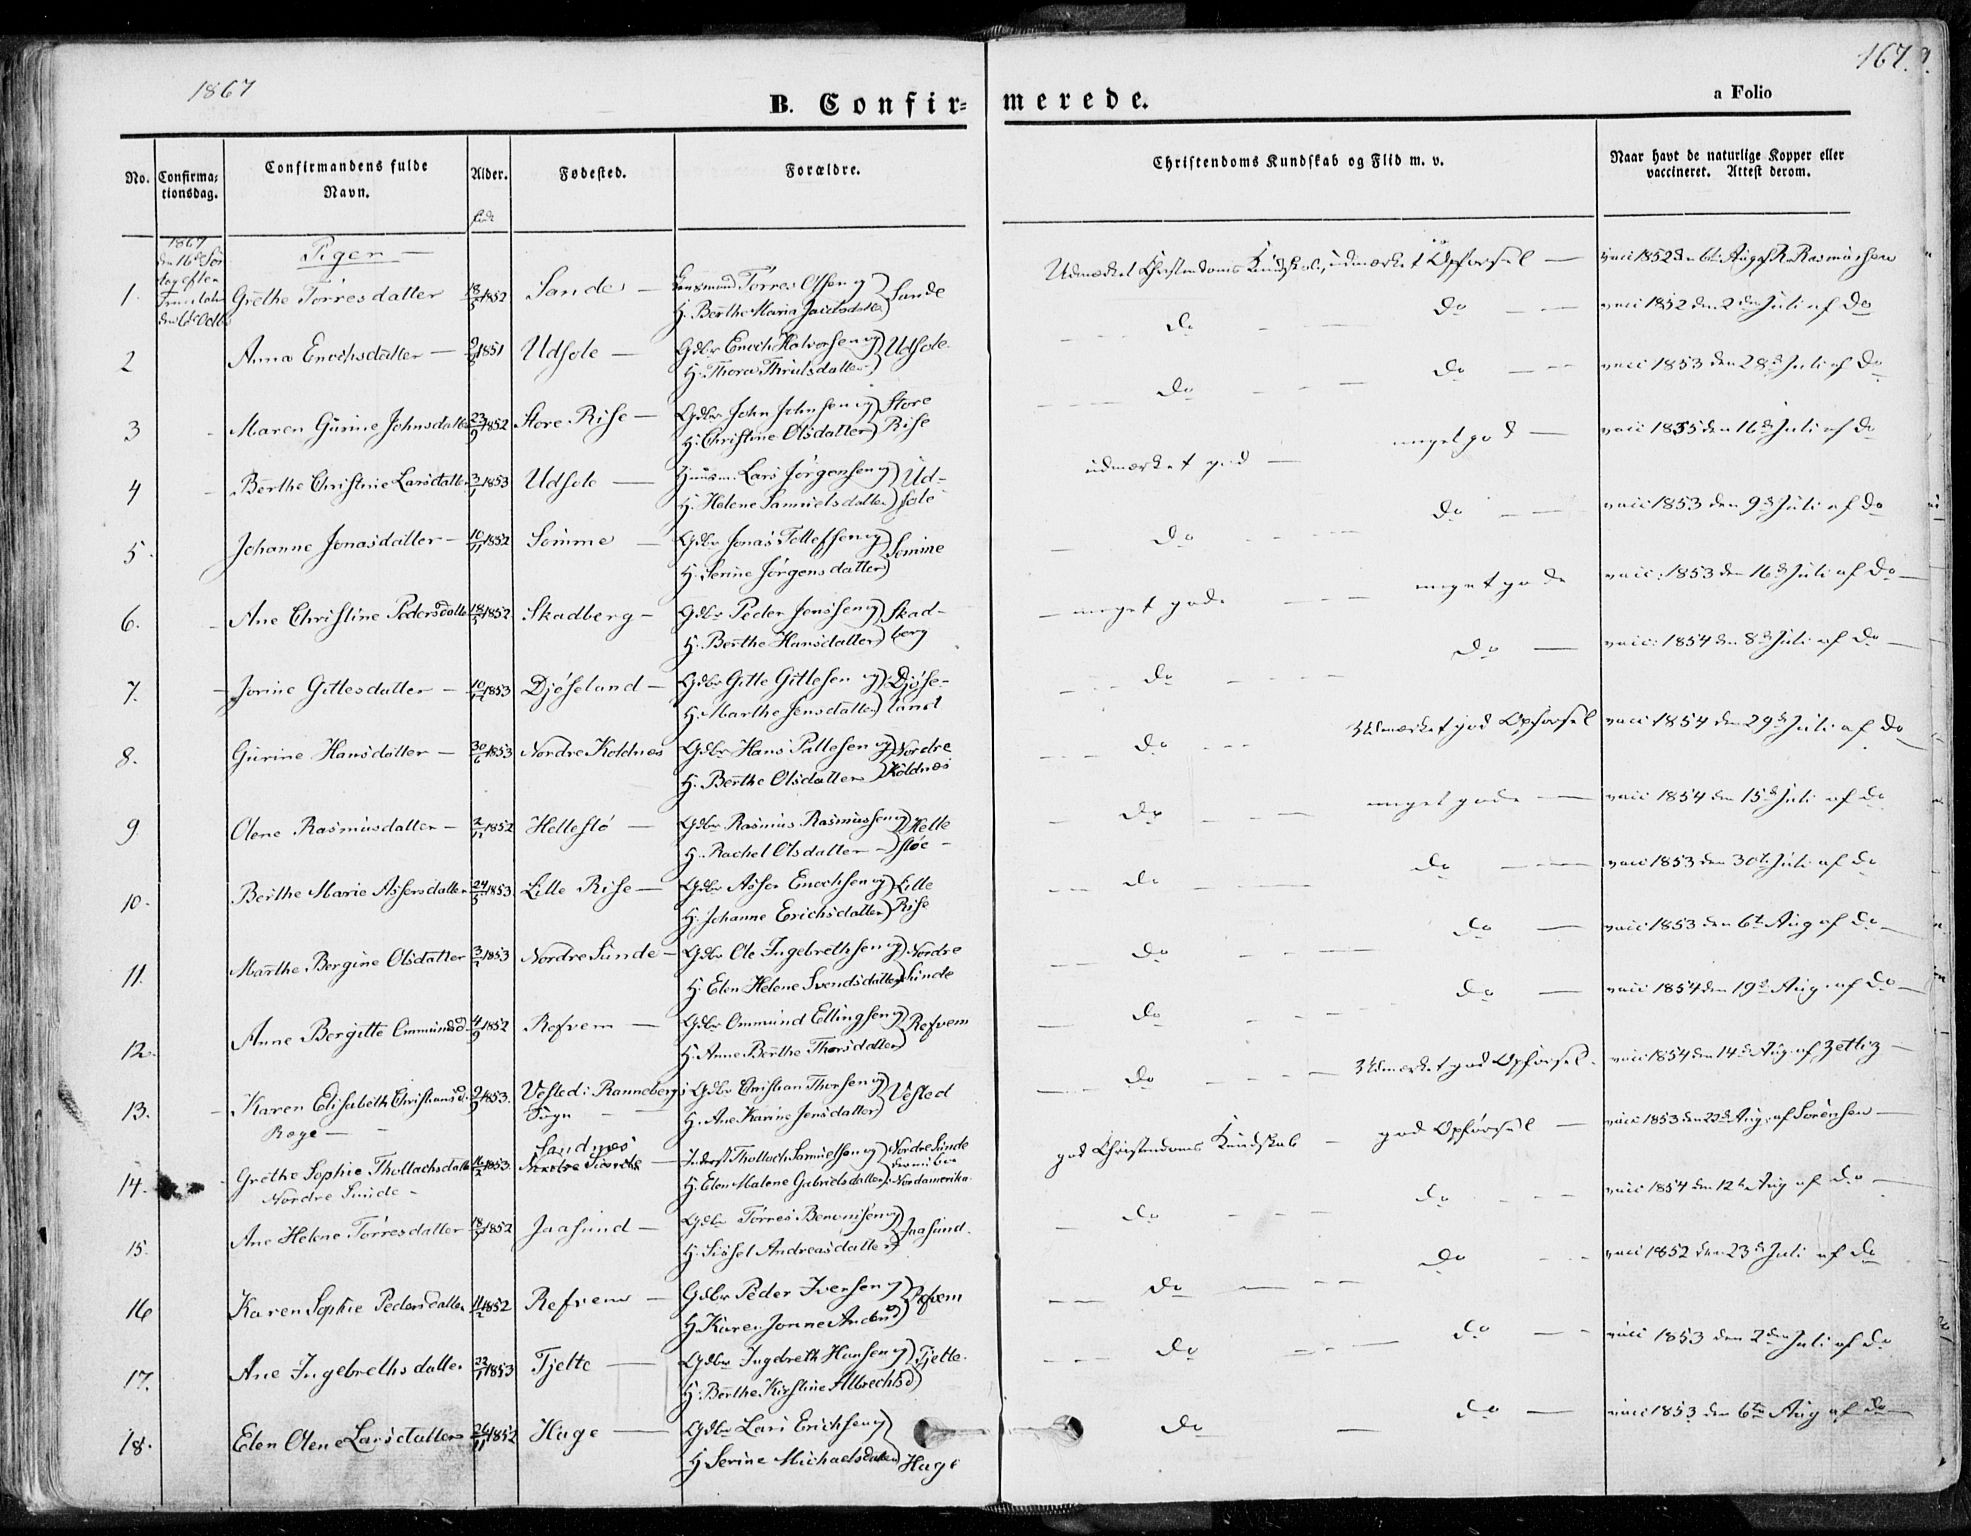 1867
167.
B. Confir=
merede.
a Folio
No.
Confirma=
tionsdag.
Confirmandens fulde
Navn.
Alder.
Fødested.
Forældre.
Christendoms Kundskab og Flid m. v.
Naar havt de naturlige Kopper eller
vaccineret. Attest derom.
1867
den 16de Søn
dag efter
den 6te Octbr
Piger —
1. Grethe Tørresdatter 18/5 1852 Sande Tørres Olsen og
H. Berthe Maria Jacobsdatter) Sande
Udmærket Christendoms Kundskab, udmærket Opførsel — vacc 1852 den 6te Aug af R. Rasmussen
2 Anna Enochsdatter — 1851 Udsole — Gdbr Enoch Halvorsen og) Udsole.
H. Thora Thrulsdatter)
do do vacc 1852 den 2den Juli af do
3 Maren Gurine Johnsdatter 23/9 1852 Store Rise — Gdbr John Johnsen og) Store
H. Christine Olsdatter) Rise
do do vacc 1853 den 28de Juli af do
4 Berthe Christine Larsdatter 3/1 1853 Udsole — Huusm. Lars Jørgensen og) Ud-
H. Helene Samuelsdatter) sole
udmærket god — meget god — vacc 1855 den 16de Juli af do
5. Johanne Jonasdatter — 10/11 1852 Sømme — Gdbr Jonas Tollefsen og) Sømme
H. Serine Jørgensdatter)
do do vacc 1853 den 9de Juli af do
6. Ane Christine Pedersdatter 18/5 1852 Skadberg — Gdbr Peder Jonsen og) Skad-
H. Berthe Hansdatter) berg
meget gode meget gode vacc: 1853 den 16de Juli af do —
7. Jorine Gittesdatter — 1853 Djøseland — Gdbr Gitte Gittesen og) Djøse-
H. Marthe Jensdatter) land
do do — vacc: 1854 den 8de Juli af do —
8. Gurine Hansdatter — 30/6 1853 Nordre Koldnes Gdbr Hans Pallesen og) Nordre
H. Berthe Olsdatter) Koldnes
do Udmærket god Opførsel vacc 1854 den 29de Juli af do
9 Olene Rasmusdatter — 2/11 1852 Hellestø — Gdbr Rasmus Rasmussen og) Helle
H. Rachel Olsdatter —) støe —
do meget gode — vacc 1854 den 15de Juli af do
10. Berthe Marie Assersdatter 24/5 1853. Lille Rise — Gdbr Asser Enochsen og) Lille
H. Johanne Erichsdatter) Rise
do do vacc 1853 den 30te Juli af do
11. Marthe Bergine Olsdatter 1853 Nordre Sunde — Gdbr Ole Ingebrethsen og) Nordre
H. Elen Helene Svendsdatter) Sunde
do do — vacc 1853 den 6te Aug af do —
12. Anne Bergitte Ommundsd. 4/9 1852 Refvem — Gdbr Ommund Ellingsen og) Refvem
H. Anne Berthe Thorsdatter)
do do — vacc 1854 den 19de Aug. af do —
13. Karen Elisabeth Christiansd. 1853. Vested i Ranneberg Gdbr Christian Thorsen og) Vested
Rege — Sogn H. Ane Karine Jensdatter)
do Udmærket god Opførsel. vacc 1854 den 14de Aug. af Zetliz —
Sandnes
14. Grethe Sophie Thollachsdatter 1853. Nordre Sunde — Inderst Thollach Samuelsen og) Nordre Sunde
Nordre Sunde — H. Elen Malene Gabrielsdatter) Nordamerika
god Christendoms Kundskab — god Opførsel — vacc 1853 den 22de Aug. af Sørensen —
15. Ane Helene Tørresdatter 18/5 1852 Jaasund — Gdbr Tørres Bennonisen og) Jaasund.
H. Sissel Andreasdatter)
do do vacc 1854 den 12te Aug af do —
16 Karen Sophie Pedersdatter 11/2 1852 Refvem — Gdbr Peder Iversen og) Refvem
H Karen Jonne
do do vacc 1852 den 23de Juli af do
17. Ane Ingebrethsdatter 22/1 1853 Tjelte — Gdbr Ingbreth Hansen og) Tjelte.
H. Berthe Kirstine Albrechtsd)
do do vacc 1853 den 2den Juli af do
18. Elen Olene Larsdatter 26/11 1852 Hage — Gdbr Lars Erichsen og)
H Serine Michaelsdatter) Hage
do do — vacc 1853 den 6te Aug af do —